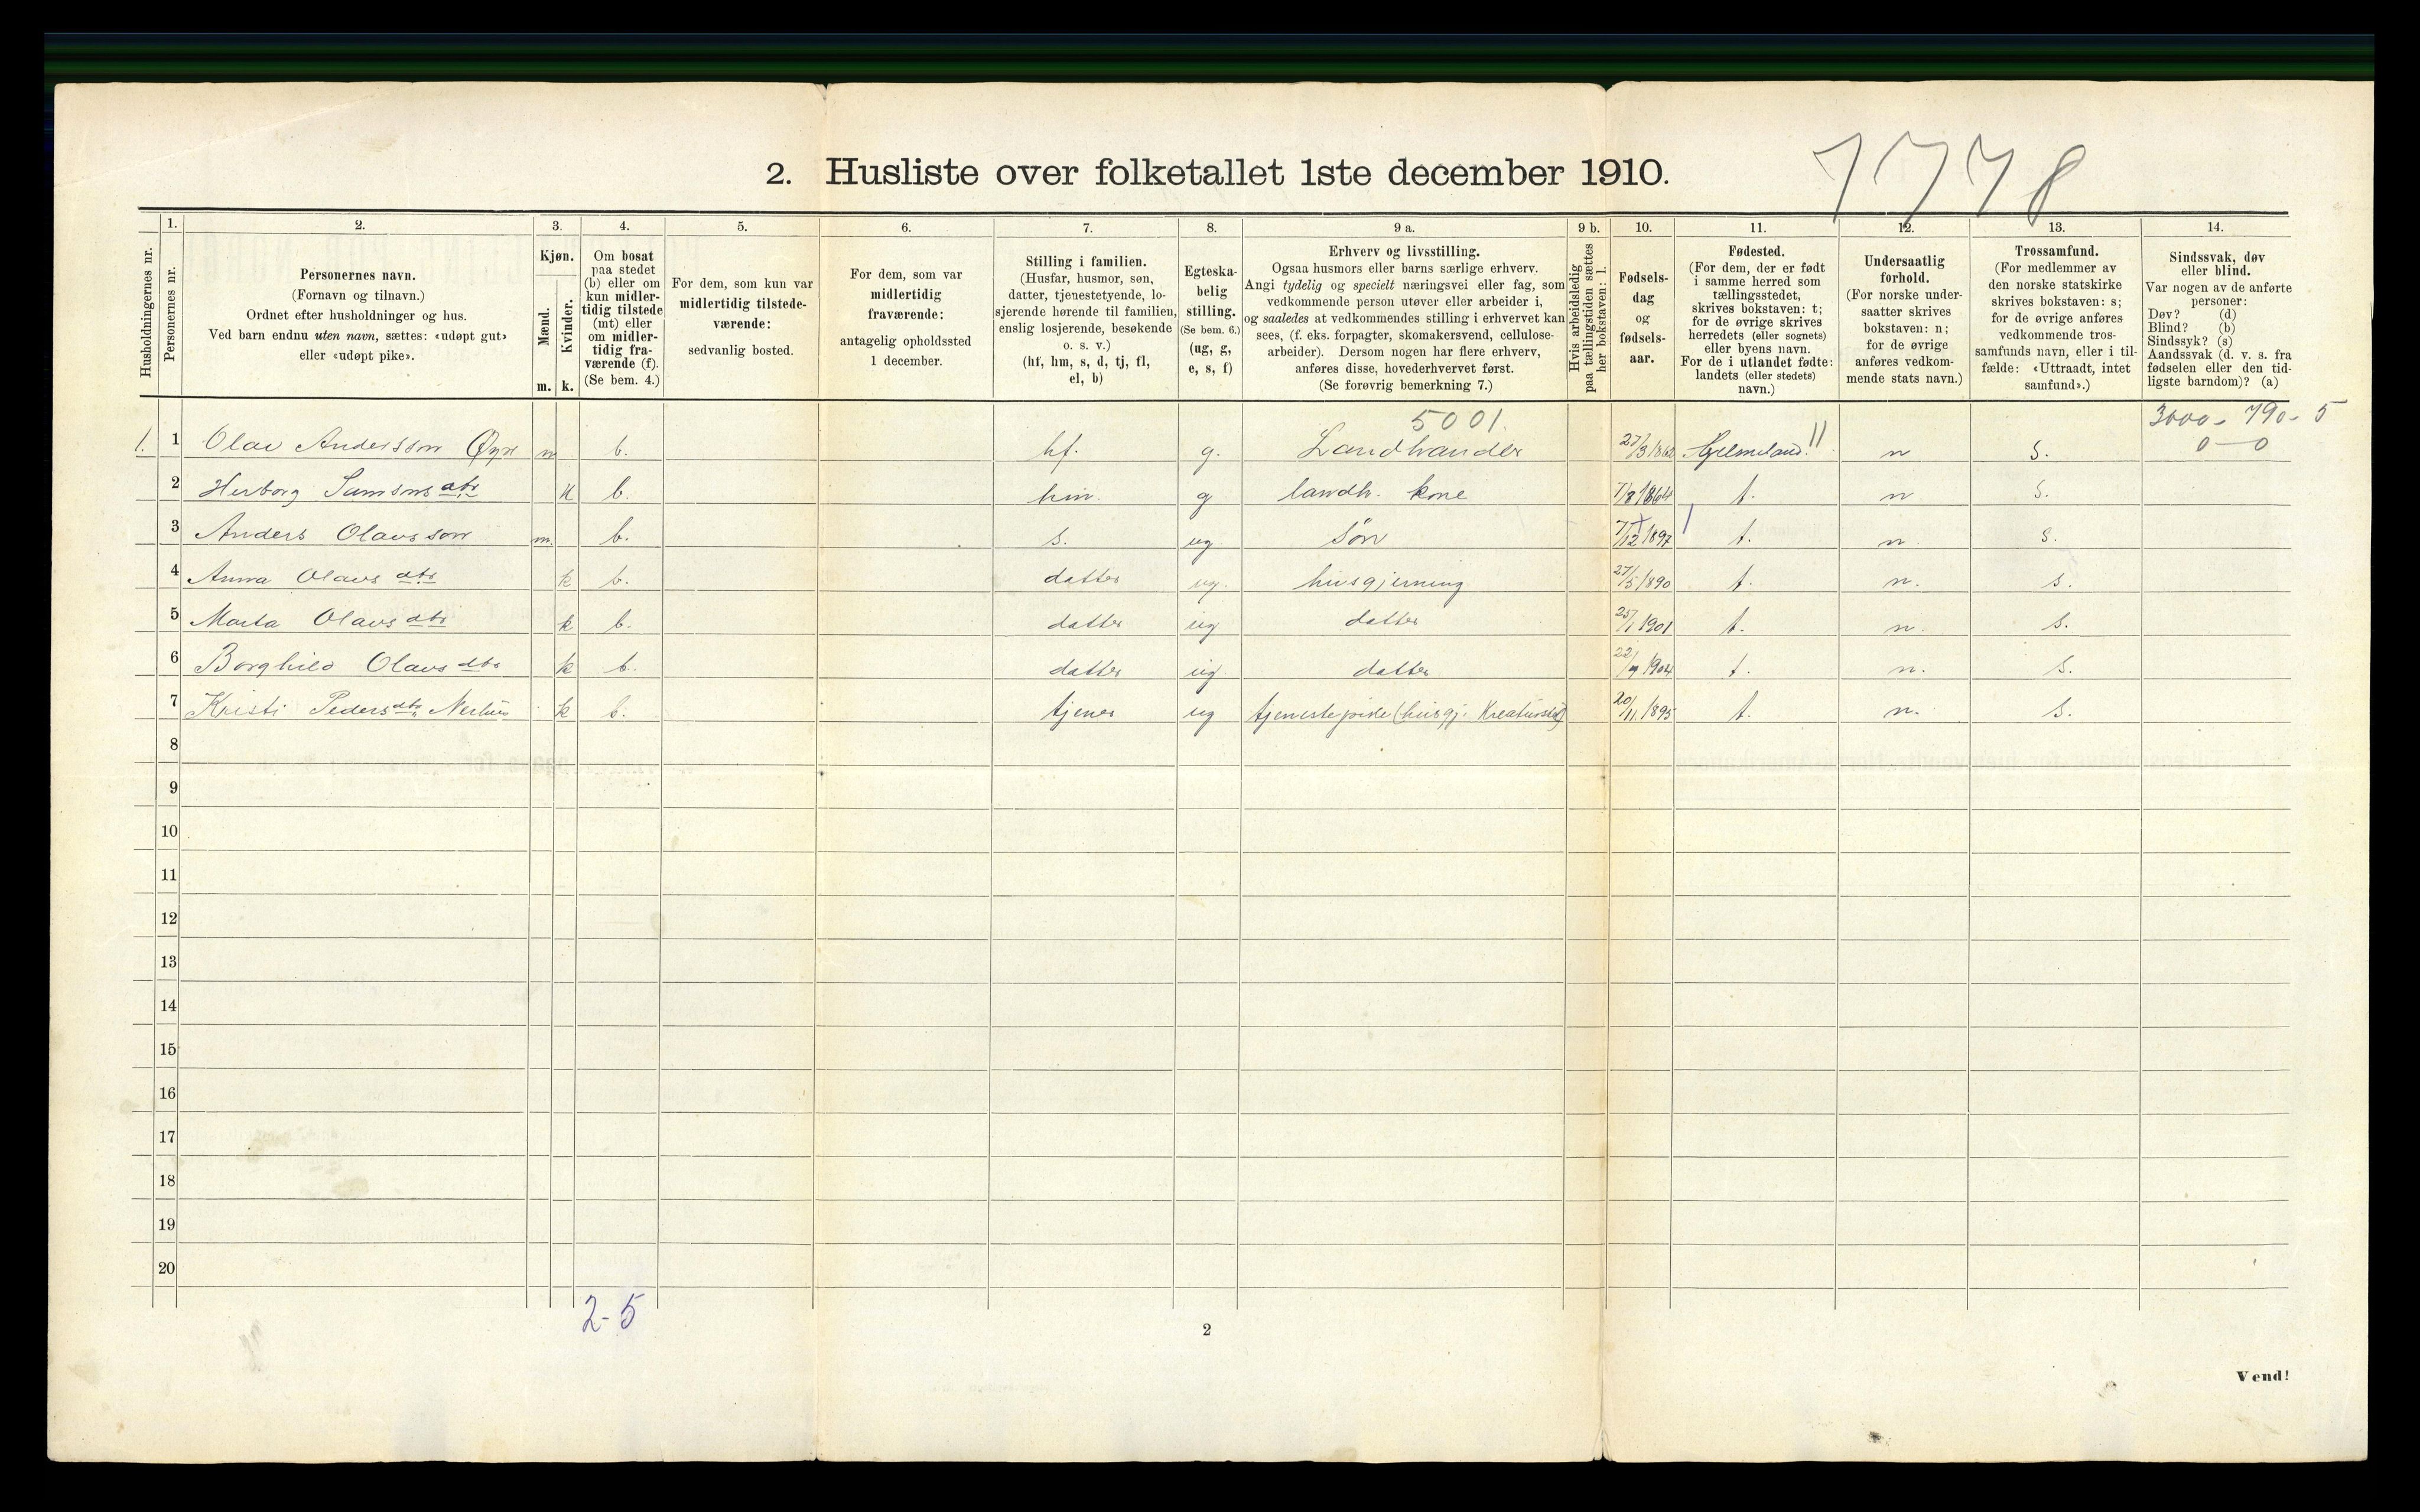 7778
2. Husliste over folketallet 1ste december 1910.
Husholdningernes nr.
1. Personernes nr.
2. Personernes navn. (Fornavn og tilnavn.) Ordnet efter husholdninger og hus. Ved barn endnu uten navn, sættes: «udøpt gut» eller «udøpt pike».
3. Kjøn. Mænd. m. Kvinder. k.
4. Om bosat paa stedet (b) eller om kun midlertidig tilstede (mt) eller om midlertidig fraværende (f). (Se bem. 4.)
5. For dem, som kun var midlertidig tilstedeværende: sedvanlig bosted.
6. For dem, som var midlertidig fraværende: antagelig opholdssted 1 december.
7. Stilling i familien. (Husfar, husmor, søn, datter, tjenestetyende, losjerende hørende til familien, enslig losjerende, besøkende o. s. v.) (hf, hm, s, d, tj, fl, el, b)
8. Egteskabelig stilling. (Se bem. 6.) (ug, g, e, s, f)
9 a. Erhverv og livsstilling. Ogsaa husmors eller barns særlige erhverv. Angi tydelig og specielt næringsvei eller fag, som vedkommende person utøver eller arbeider i, og saaledes at vedkommendes stilling i erhvervet kan sees, (f. eks. forpagter, skomakersvend, cellulosearbeider). Dersom nogen har flere erhverv, anføres disse, hovederhvervet først. (Se forøvrig bemerkning 7.)
9 b. Hvis arbeidsledig paa tællingstiden sættes her bokstaven: l.
10. Fødselsdag og fødselsaar.
11. Fødested. (For dem, der er født i samme herred som tællingsstedet, skrives bokstaven: t; for de øvrige skrives herredets (eller sognets) eller byens navn. For de i utlandet fødte: landets (eller stedets) navn.)
12. Undersaatlig forhold. (For norske undersaatter skrives bokstaven: n; for de øvrige anføres vedkommende stats navn.)
13. Trossamfund. (For medlemmer av den norske statskirke skrives bokstaven: s; for de øvrige anføres vedkommende trossamfunds navn, eller i tilfælde: «Uttraadt, intet samfund».)
14. Sindssvak, døv eller blind. Var nogen av de anførte personer: Døv? (d) Blind? (b) Sindssyk? (s) Aandssvak (d. v. s. fra fødselen eller den tidligste barndom)? (a)
5001. 3000 - 790 - 5
1. 1 Olav Andersson Øyre m b. hf. g. Landhandler 27/3 1862 Hjelmeland. 11 n s. 0 - 0
2 Herborg Samsonsdtr k b. hm. g landh. kone 7/8 1864 t. n s.
3 Anders Olavsson m. b. s. ug Søn 7/12 1897 t. n s.
4 Anna Olavsdtr k b. datter ug. husgjerning 27/5 1890 t. n. s.
5 Marta Olavsdtr k b. datter ug datter 25/1 1901 t. n. s.
6 Borghild Olavsdtr k b. datter ug datter 22/9 1904 t. n. s.
7 Kristi Pedersdtr. k b. tjener ug tjenestepike (husgj. Kreaturstel) 20/11 1895 t. n. s.
8
9
10
11
12
13
14
15
16
17
18
19
20
2-5
2
Vend!